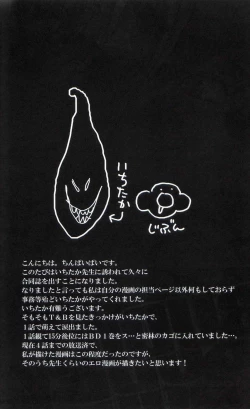 いちたか
じぶん
こんにちは。ちんぱいぱいです。
このたびはいちたか先生に誘われて久々に
合同誌を出すことになりました。
なりましたと言っても私は自分の漫画の担当ページ以外何もしておらず
事務等殆どいちたかがやってくれました。
いちたか有難うございます。
そもそもT&Bを見たきっかけがいちたかで、
1話で萌えて涙出ました。
1話観て15分後位にはBD1巻をスーと密林のカゴに入れていました…。
現在4話までの放送済で、
私が描けた漫画はこの程度だったのですが、
そのうち先生くらいのエロ漫画が描きたいと思います！